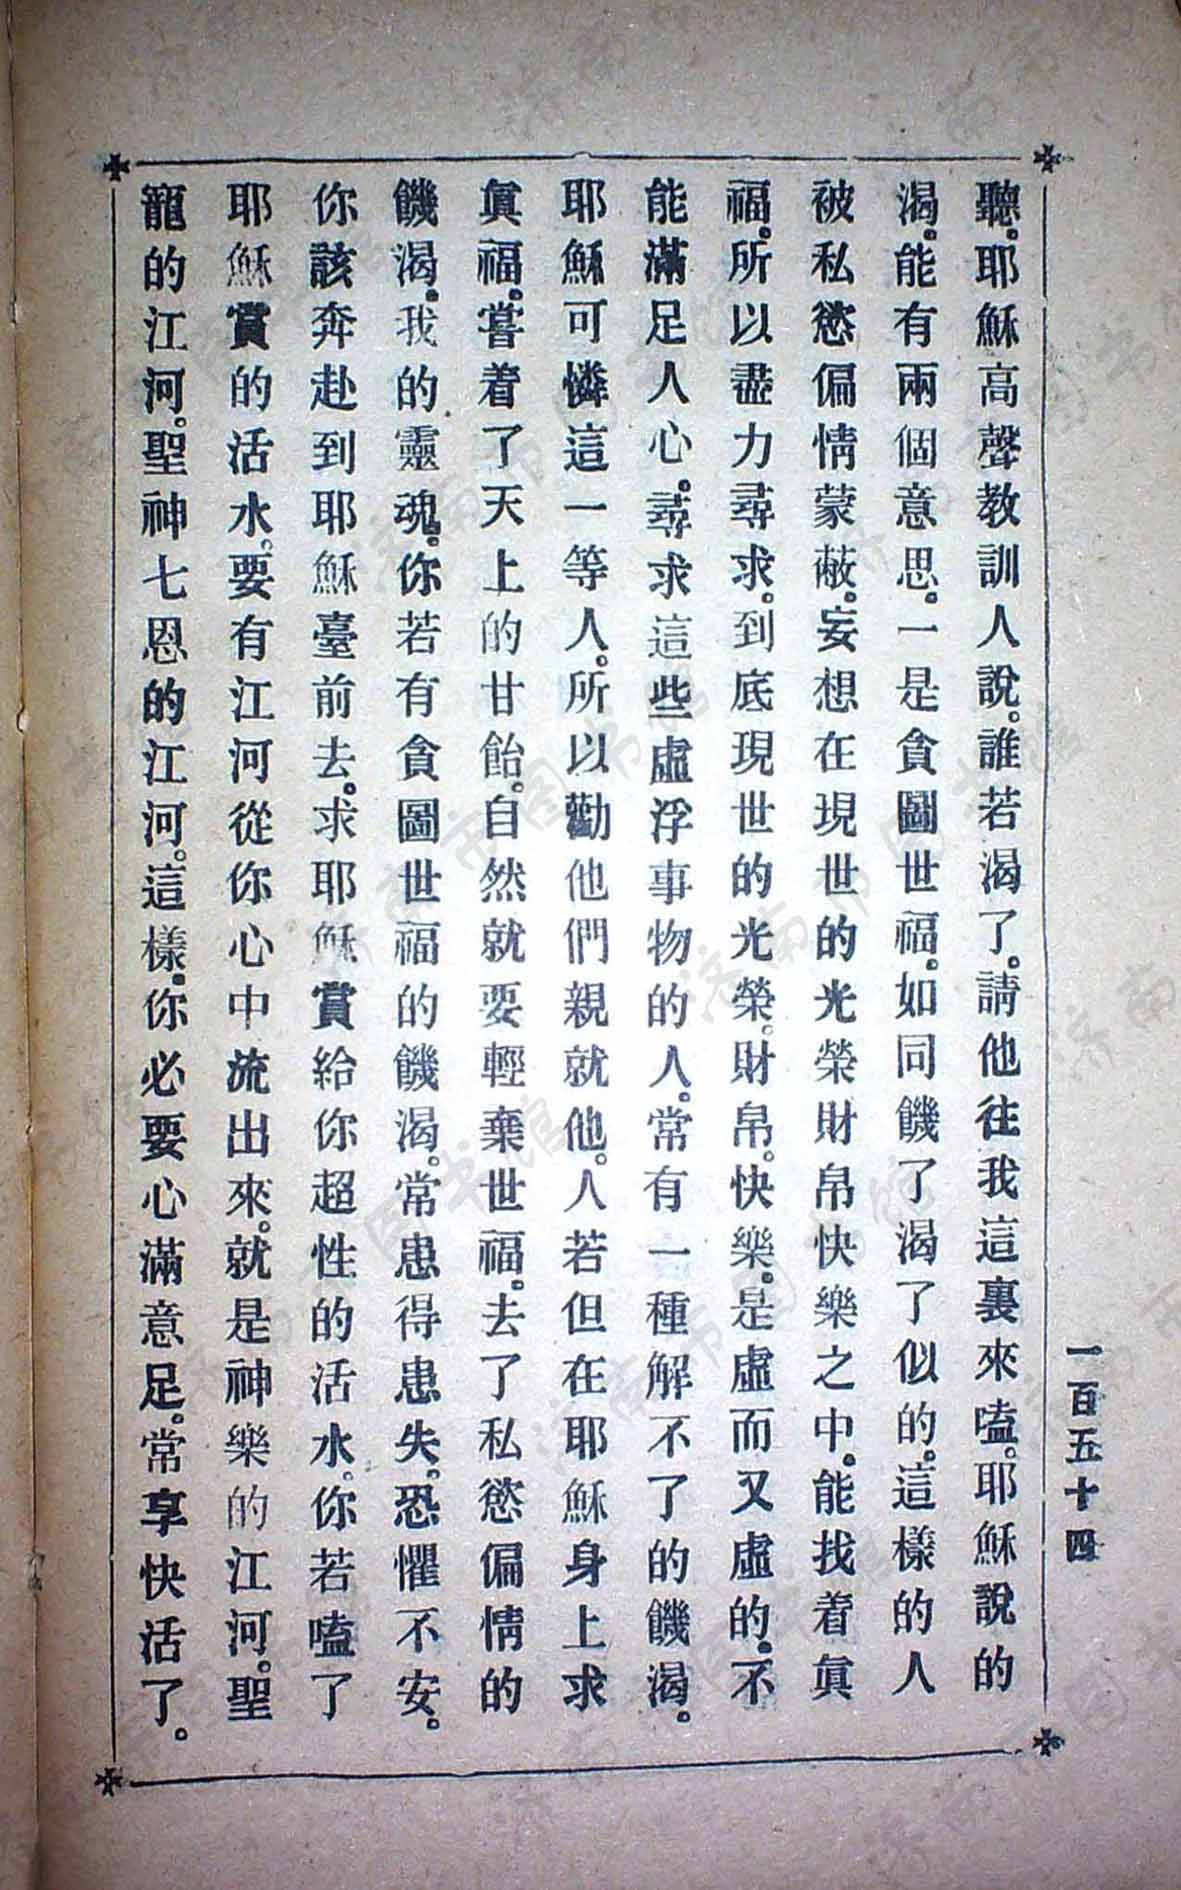 聽。耶穌高聲教訓人說。誰若渴了。請他往我這裏來嗑。耶穌說的
渴。能有兩個意思。一是貪圖世福。如同饑了渴了似的。這樣的人
被私慾偏情蒙蔽。妄想在現世的光榮財帛快樂之中。能找着眞
福。所以盡力尋求。到底現世的光榮。財帛。快樂。是虛而又虛的。不
能滿足人心。尋求這些虛浮事物的人。常有一種解不了的饑渴。
耶穌可憐這一等人。所以勸他們親就他。人若但在耶穌身上求
眞福。嘗着了天上的甘飴。自然就要輕棄世福。去了私慾偏情的
饑渴。我的靈魂。你若有貪圖世福的饑渴。常患得患失。恐懼不安。
你該奔赴到耶穌臺前去。求耶穌賞給你超性的活水。你若嗑了
耶穌賞的活水。要有江河從你心中流出來。就是神樂的江河。聖
寵的江河。聖神七恩的江河。這樣。你必要心滿意足。常享快活了。
一百五十四